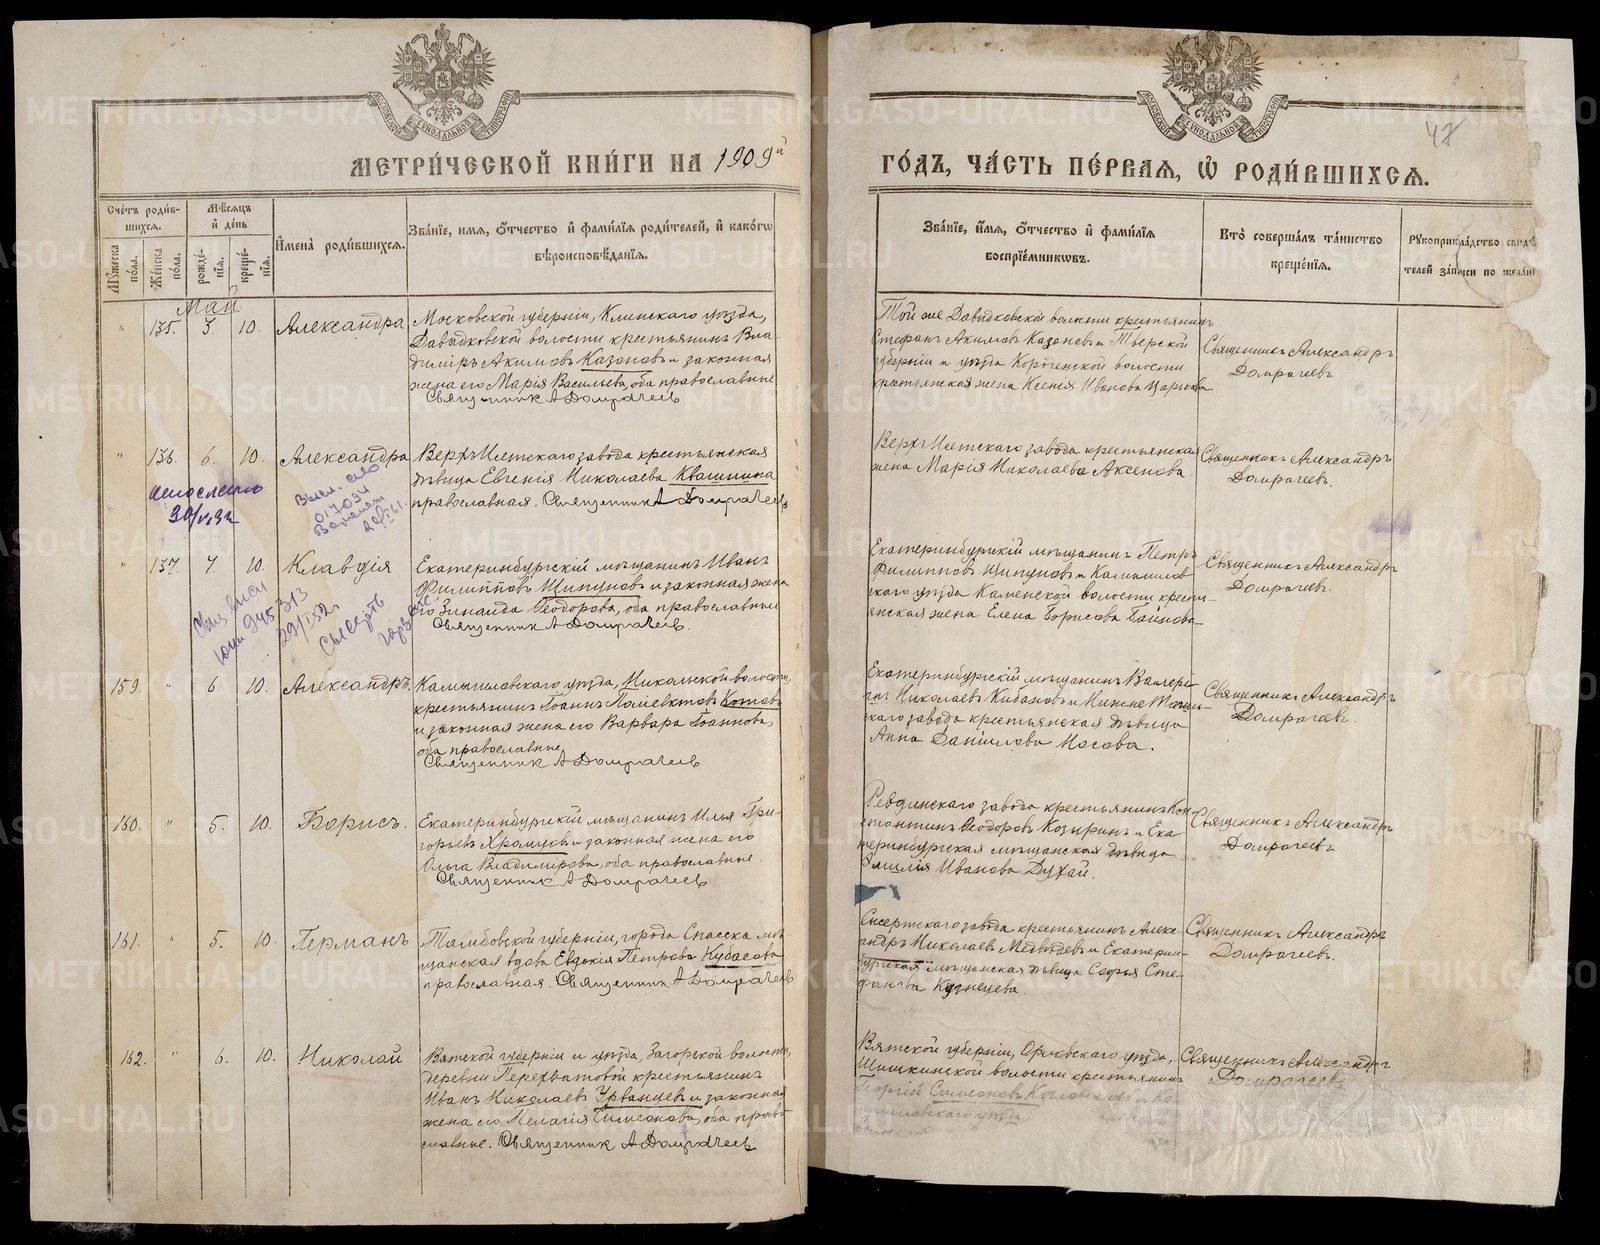 МЕТРИ́ЧЕСКОЙ КНИ́ГИ НА 1909й
ГО́ДЪ, ЧА́СТЬ ПЕ́РВАЯ, Ѽ РОДИ́ВШИХСЯ.
47
Сче́тъ роди́в-
шихся.
Мѣ́сяцъ
и҆ де́нь
Мꙋ́жеска по́ла.
Же́нска по́ла.
рожде́-
нїѧ.
креще́-
нїѧ.
И҆мена̀ роди́вшихся.
Зва́нїе, и́мѧ, ѻ҆́тчество и҆ фами́лїѧ роди́телей, и҆ како́гѡ
вѣроисповѣ́данїѧ.
Зва́нїе, и҆́мѧ, ѻ҆́тчество и҆ фами́лїѧ
воспрїе́мникѡвъ.
Кто̀ соверша́лъ та́инство
креще́нїѧ.
Рꙋкоприкла́дство свидѣ́
телей за́писи по жела́нї
Май
" 135. 5. 10. Александра
Московской губернiи, Клинскаго уѣзда,
Давыдковской волости крестьянинъ Вла-
димiръ Акимовъ Казаковъ и законная
жена его Марiя Василiева, оба православные
Священник А Домрачеев
Той же Давыдковской волости крестьянин
Стефанъ Акимовъ Казаковъ и Тверской
губернiи и уѣзда волости
крестьянская жена Ксенiя Иванова Царькова
Священникъ Александръ
Домрачеевъ.
" 136. 6. 10. Александра
Верхъ-Исетскаго завода крестьянская
дѣвица Евгенiя Николаева Квашнина
православная. Священник А Домрачеев
Верхъ-Исетскаго завода крестьянская
жена Марiя Николаева Аксенова.
Священникъ Александръ
Домрачеевъ.
" 137. 7. 10. Клавдiя
Екатеринбургскiй мѣщанинъ Иванъ
Филипповъ Щипуновъ и законная жена
его Зинаида Ѳеодорова, оба православные
Священник А Домрачеев.
Екатеринбургскiй мѣщанинъ Петръ
Филипповъ Щипуновъ и Камышлов-
скаго уѣзда Каменской волости кресть-
янская жена Елена Борисова
Священникъ Александръ
Домрачеевъ.
159. " 6 10. Александръ.
Камышловскаго уѣзда, Никольской волости,
крестьянинъ Iоаннъ Котовъ
и законная жена его Варвара Iоаннова,
оба православные
Священник А Домрачеев
Екатеринбургскiй мѣщанинъ Валери-
анъ Николаевъ Кибановъ и Нижне Тагиль-
скаго завода крестьянская дѣвица
Анна Данiилова Носова.
Священникъ Александръ
Домрачеевъ.
160. " 5. 10. Борисъ.
Екатеринбургскiй мѣщанинъ Илья Гри-
горьевъ Храмцовъ и законная жена его
Ольга Владимiрова, оба православные.
Священник А Домрачеев
Ревдинскаго завода крестьянинъ Кон-
стантинъ Ѳеодоровъ Козыринъ и Ека-
теринбургская мѣщанская дѣвица
Эмилiя Иванова Духай.
Священникъ Александръ
Домрачеевъ
161. " 5. 10. Германъ
Тамбовской губернiи, города Спасска мѣ-
щанская вдова Евдокiя Петрова Кубасова
православная. Священник А Домрачеев
Сысертскаго завода крестьянинъ Алекс-
андръ Николаевъ Медвѣдевъ и Екатерин-
бургская мѣщанская дѣвица Софья Сте-
фанова Кузнецова.
Священникъ Александръ
Домрачеевъ.
162. " 6. 10. Николай
Вятской губернiи и уѣзда, Загорской волости,
деревни Перехватовой крестьянинъ
Иванъ Николаевъ Урванцевъ и законная
жена его Пелагiя Симеонова, оба право-
славные. Священник А Домрачеев
Вятской губернiи, Орловскаго уѣзда,
Шишкинской волости крестьянинъ
Георгiй Симеоновъ
уѣзда
Священникъ Александръ
Домрачеевъ